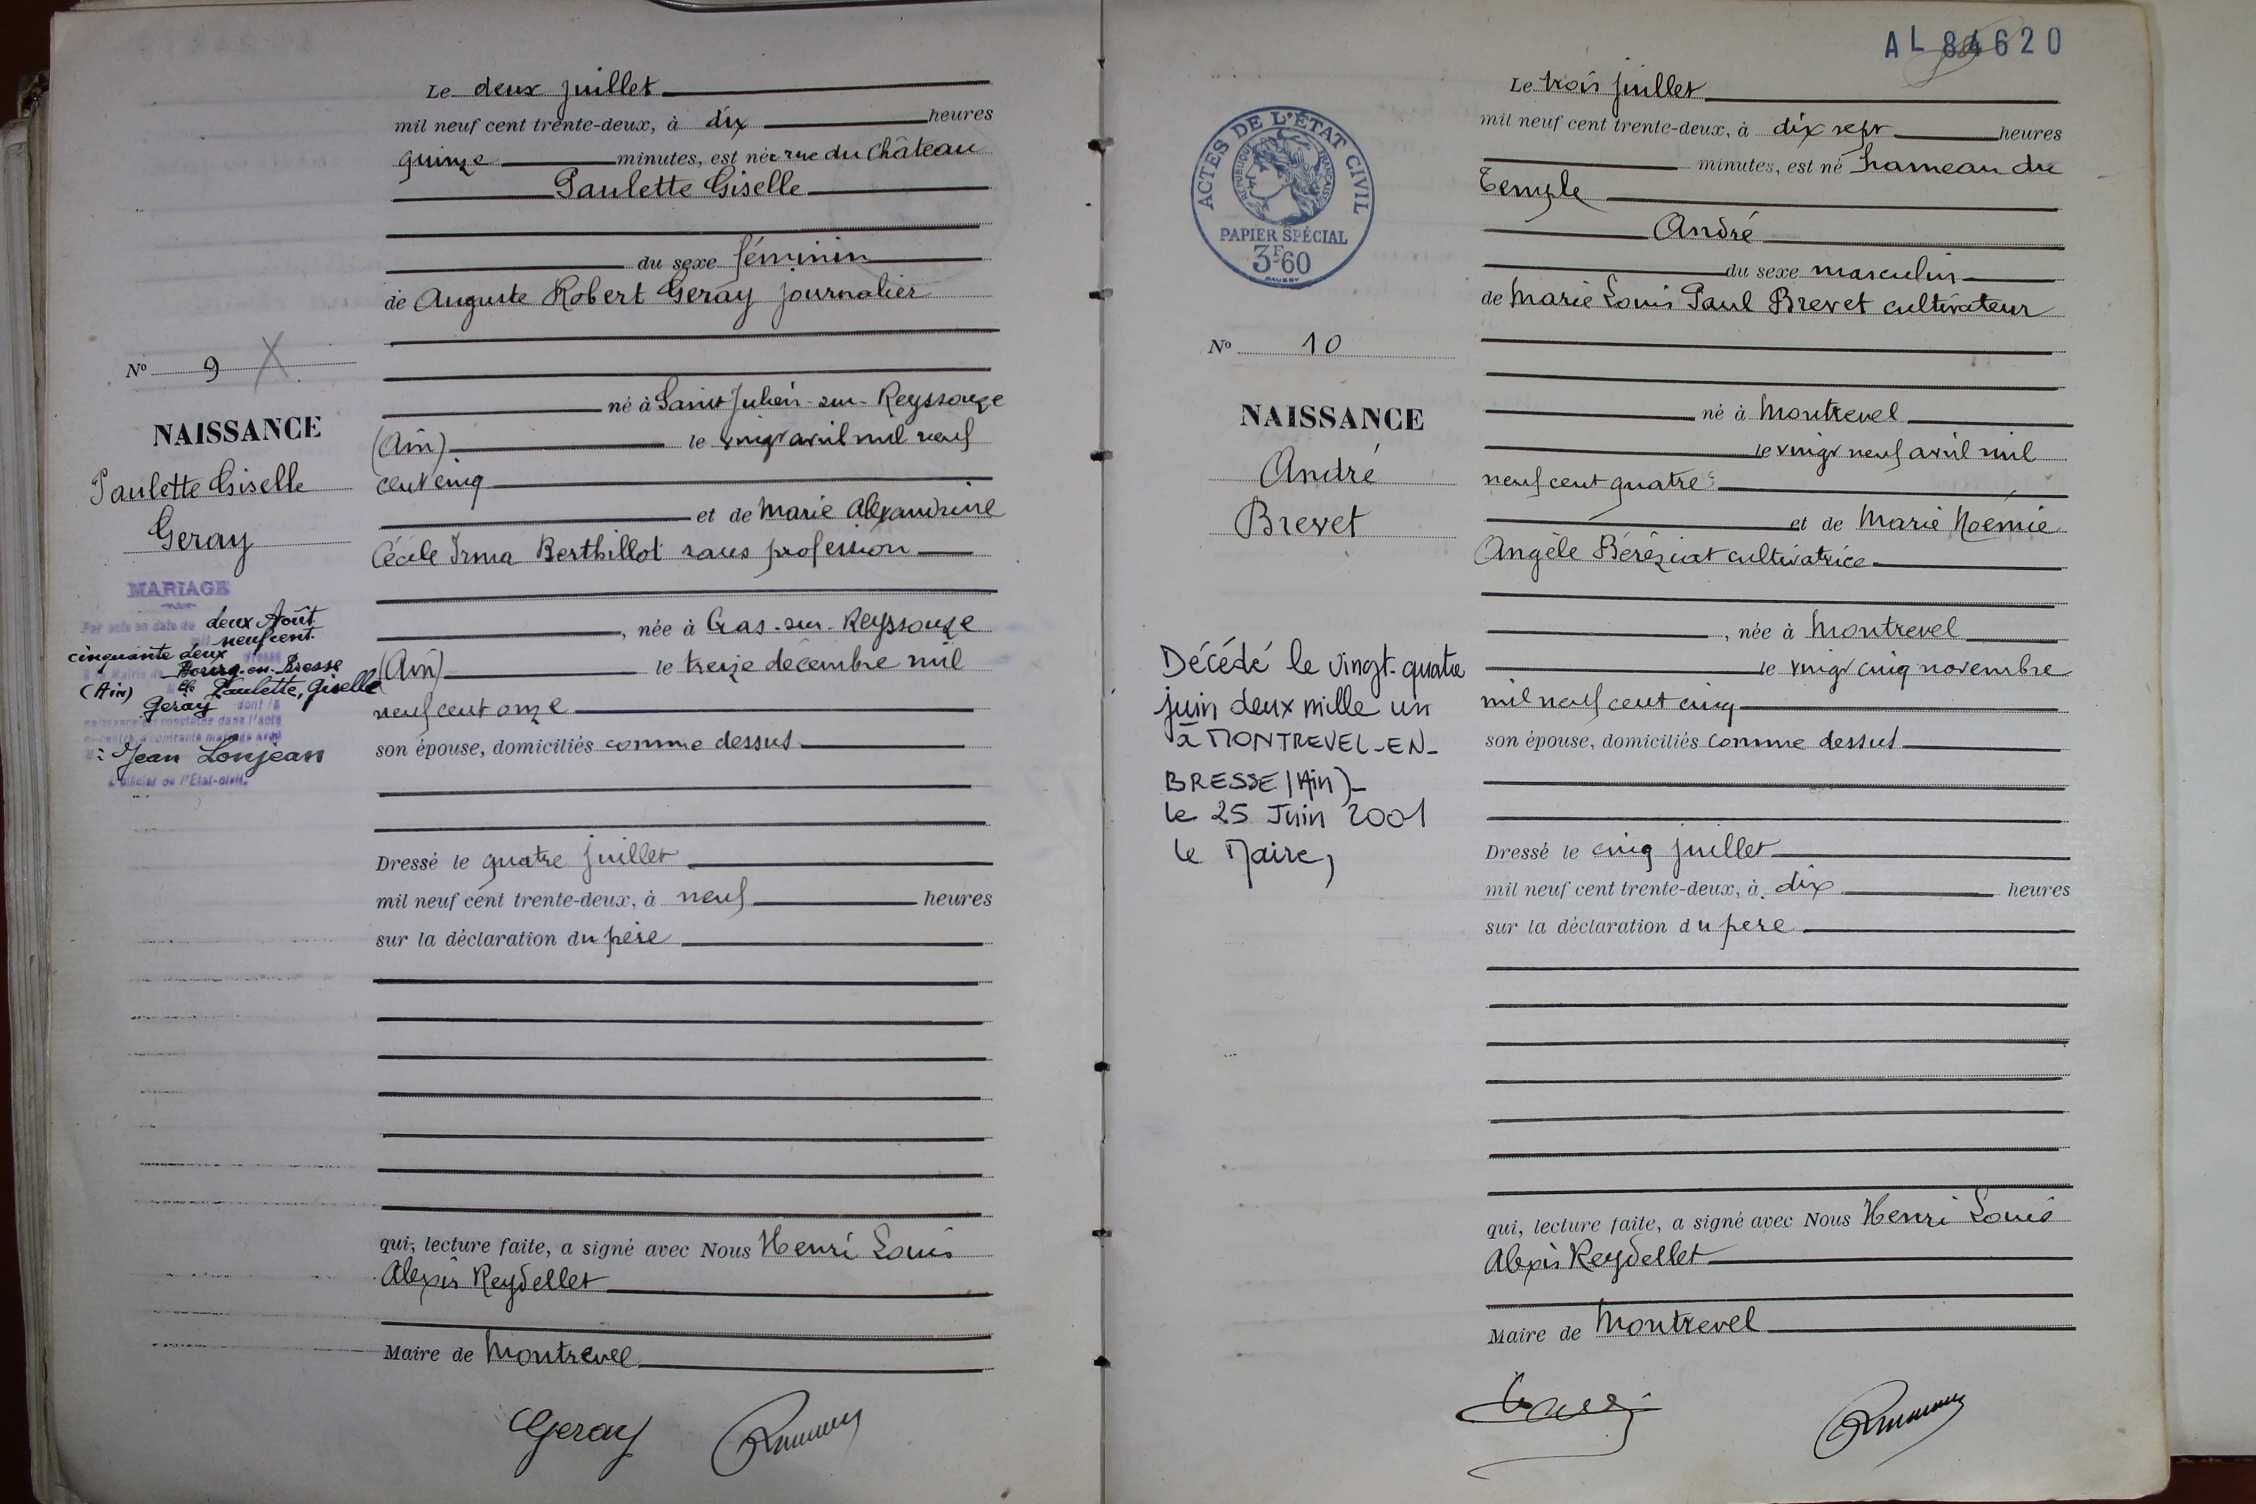 Le deux juillet
mil neuf cent trente-deux, à dix heures
quinze minutes, est née rue du Château
Paulette Giselle
du sexe féminin
de Auguste Robert Geray journalier
né à Saint Julien-sur-Reyssouze
(Ain) le vingt avril mil neuf
cent cinq
et de Marie Alexandrine
Cécile Irma Berthillot sans profession
, née à Cras-sur-Reyssouze
(Ain) le treize décembre mil
neuf cent onze
son épouse, domiciliés comme dessus
Dressé le quatre juillet
mil neuf cent trente-deux, à neuf heures
sur la déclaration du père
qui, lecture faite, a signé avec Nous Henri Louis
Alexis Reydellet
Maire de Montrevel
Geray
No 9 X
NAISSANCE
Paulette Giselle
Geray
MARIAGE
Par acte en date du deux Août
mil neuf cent
cinquante deux
Bourg-en-Bresse
(Ain) Paulette, Giselle
Geray dont la
naissance est constatée dans l'acte
ci-contre a contracté mariage avec
M: Jean Lonjean
L'Officier de l'Etat-civil.
AL 84620
ACTES DE L'ÉTAT CIVIL
RÉPUBLIQUE FRANÇAISE
PAPIER SPÉCIAL
3F60
No 10
NAISSANCE
André
Brevet
Décédé le vingt-quatre
juin deux mille un
à MONTREVEL-EN-
BRESSE (Ain)-
le 25 Juin 2001
le Maire,
Le trois juillet
mil neuf cent trente-deux, à dix sept heures
minutes, est né hameau du
Temple
André
du sexe masculin
de Marie Louis Paul Brevet cultivateur
né à Montrevel
le vingt neuf avril mil
neuf cent quatre
et de Marie Noémie
Angèle Béréziat cultivatrice
, née à Montrevel
le vingt cinq novembre
mil neuf cent cinq
son épouse, domiciliés comme dessus
Dressé le cinq juillet
mil neuf cent trente-deux, à dix heures
sur la déclaration du père
qui, lecture faite, a signé avec Nous Henri Louis
Alexis Reydellet
Maire de Montrevel